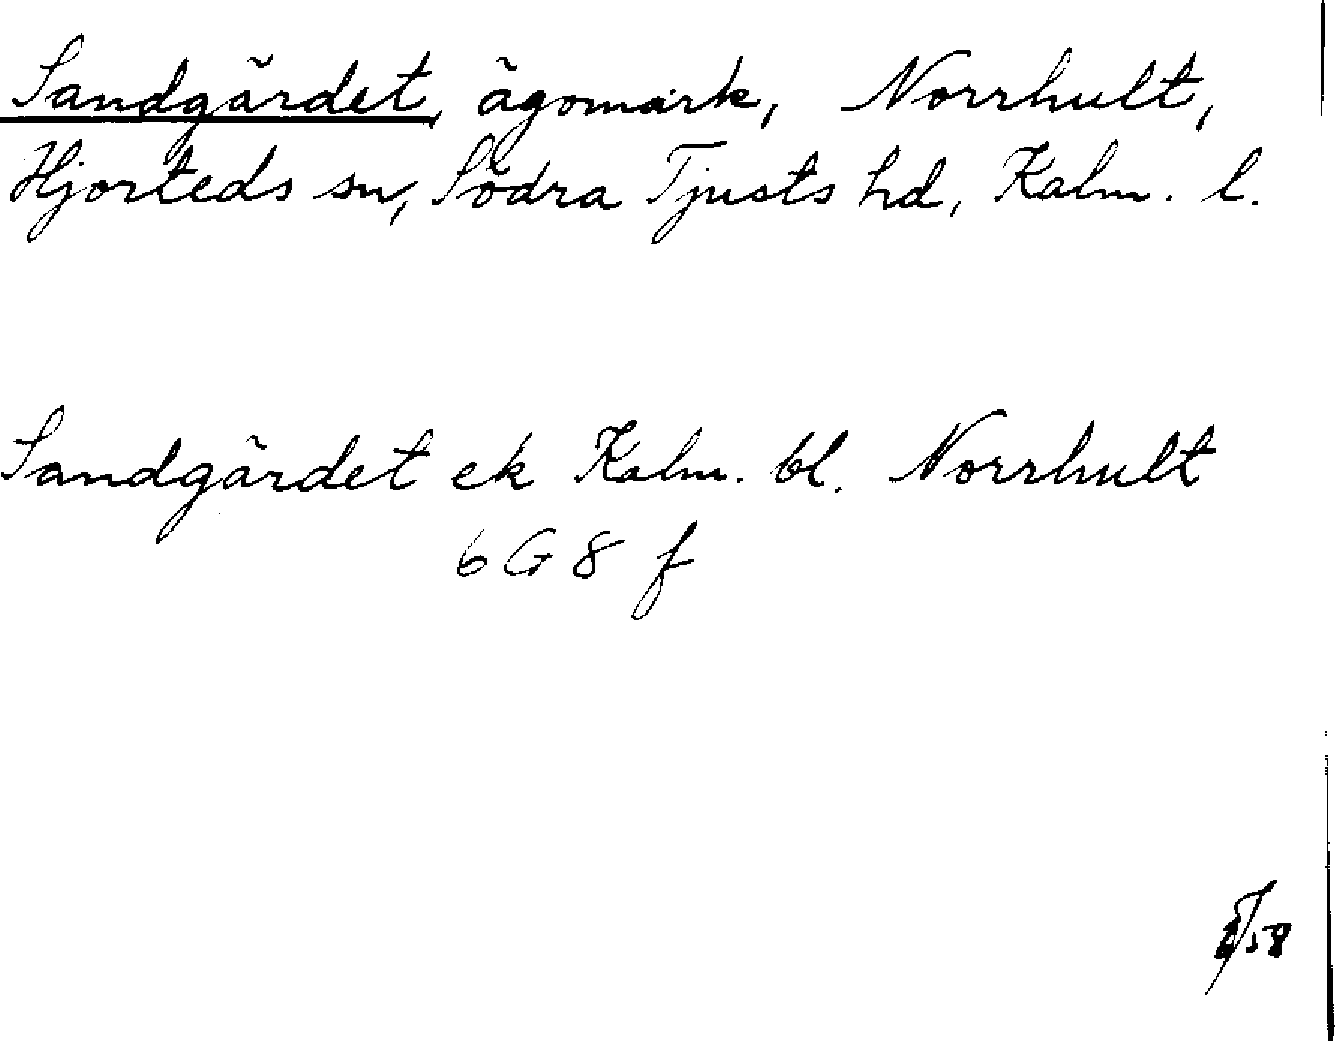 Sandgärdet, ägomark, Norrhult,
Hjorteds sn, Södra Tjusts hd, Kalm. l.
Sandgärdet ek Kalm. bl. Norrhult
6 G 8 f